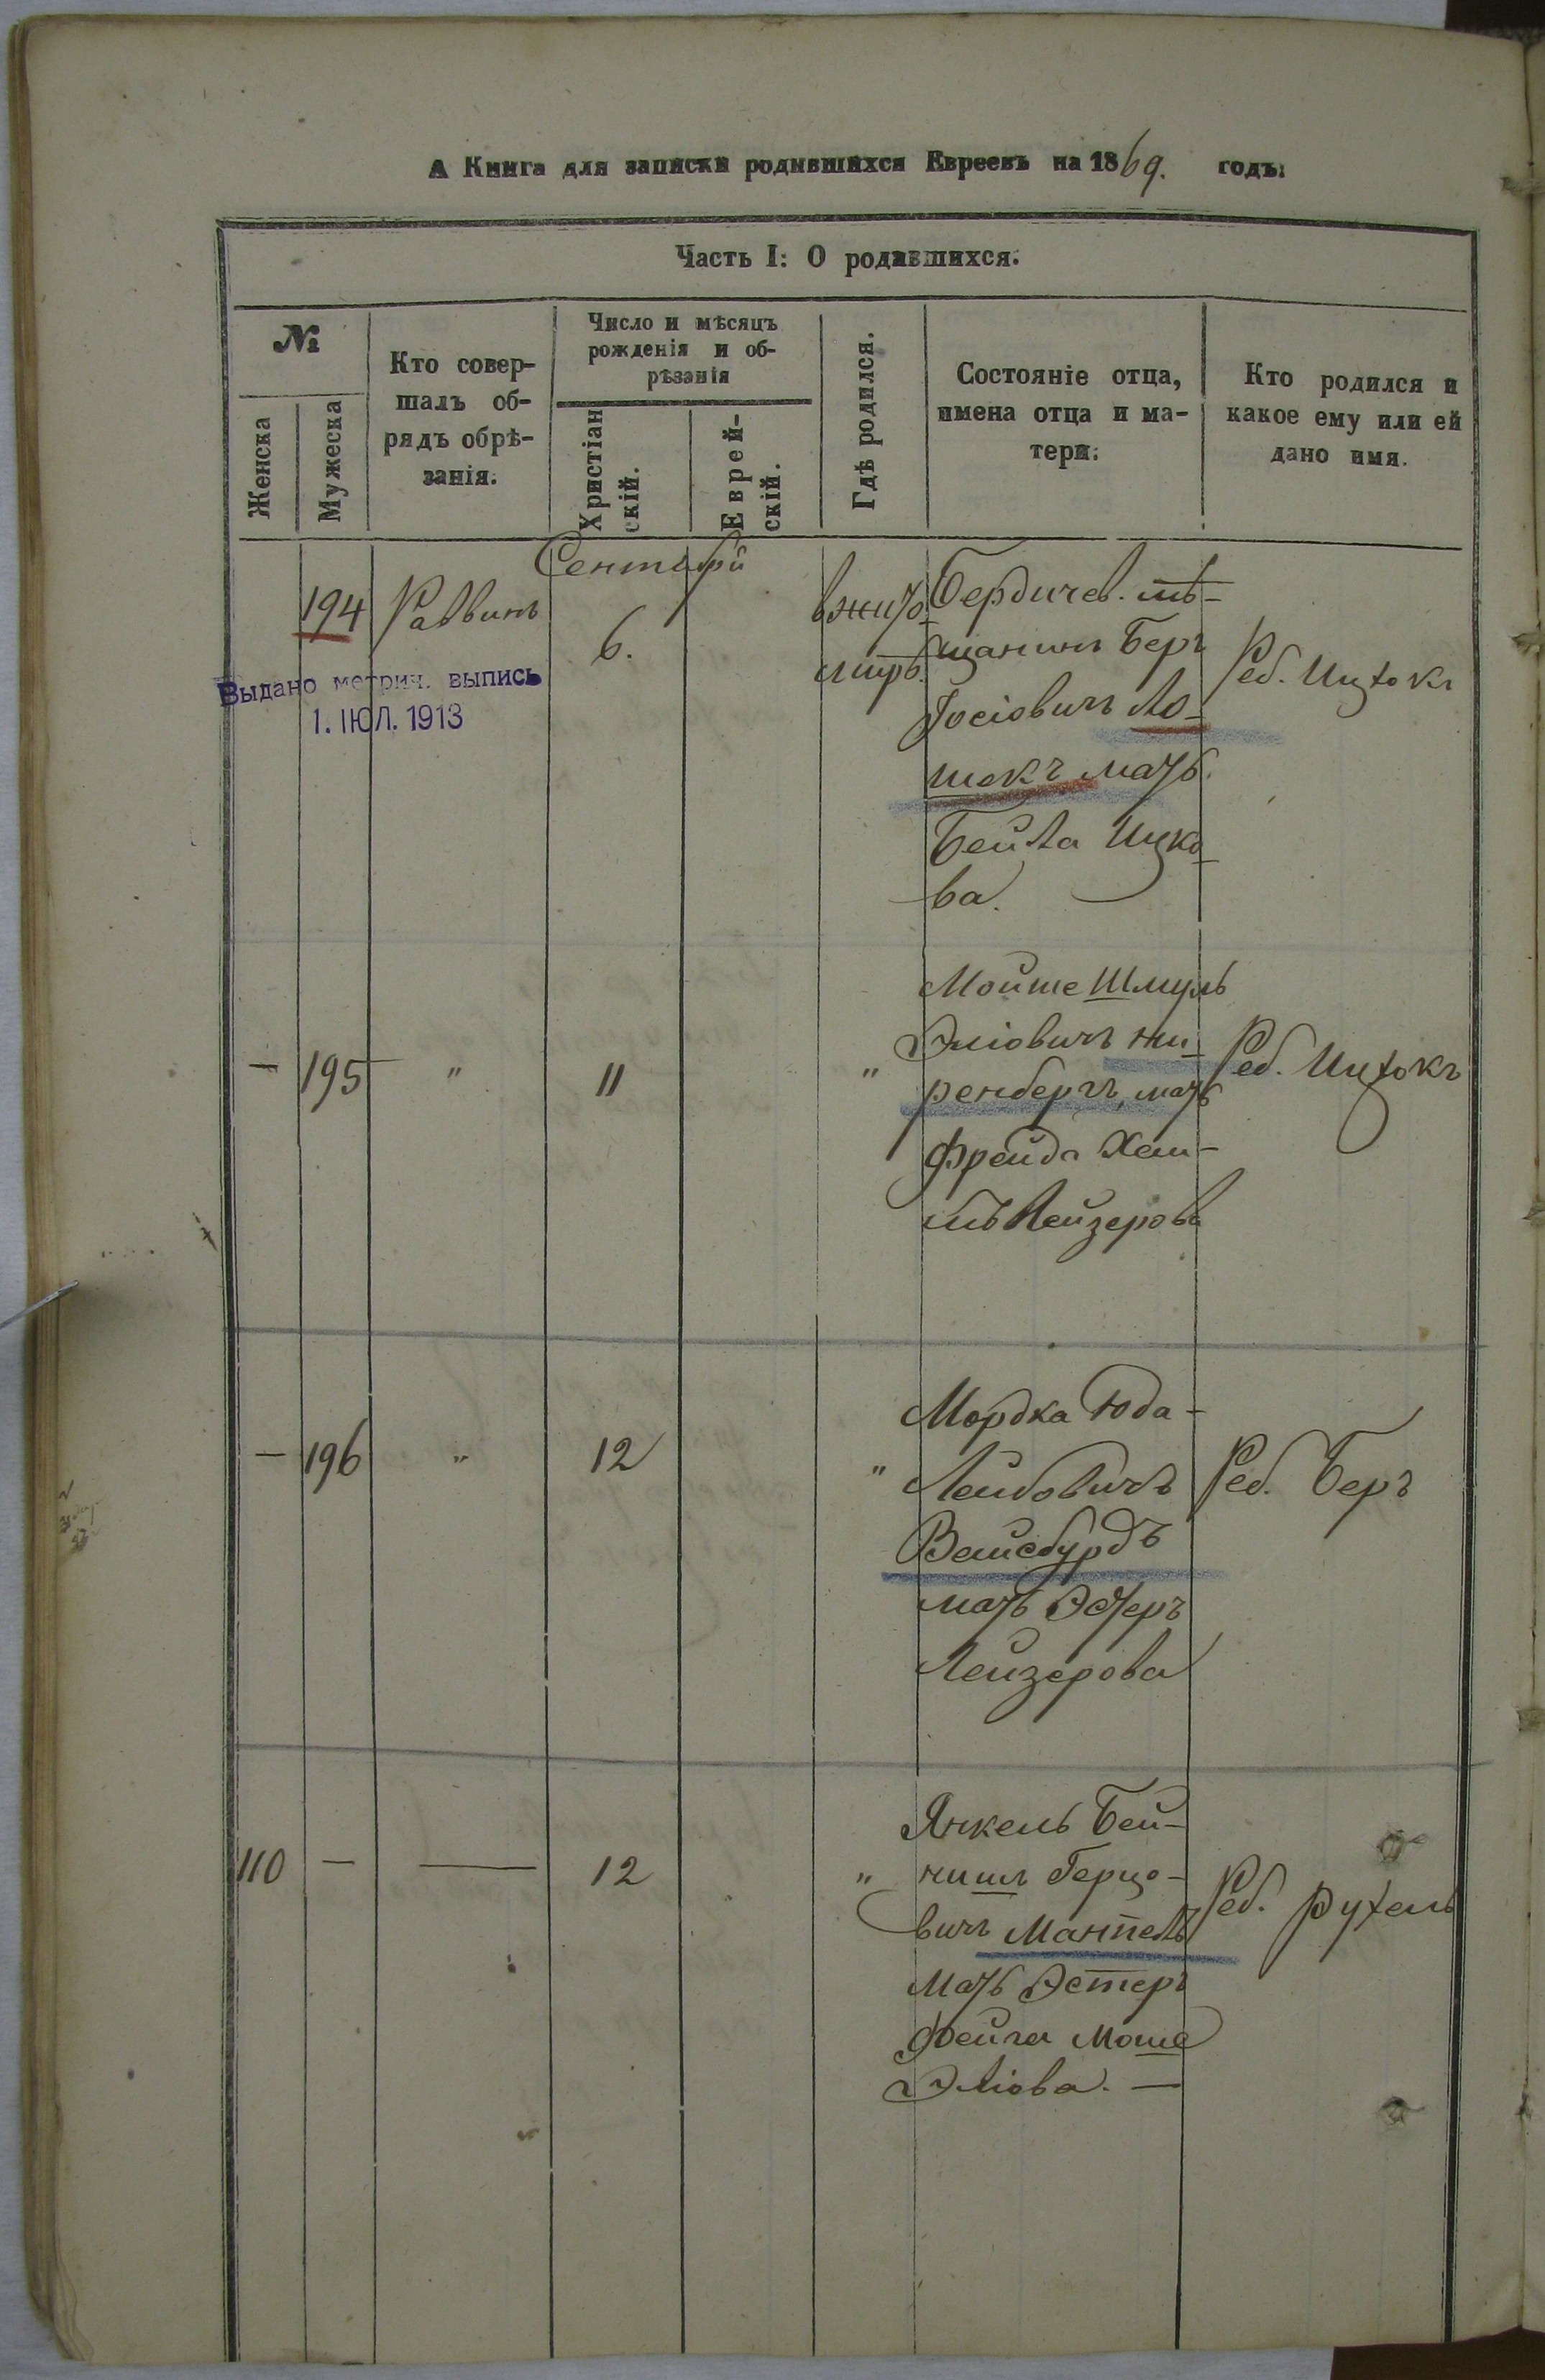 А Книга для записки родившихся Евреевъ на 1869. годъ:
Часть I: О родившихся.
№
Женска
Мужеска
Кто совер-
шалъ об-
рядъ обрѣ-
занія.
Число и мѣсяцъ
рожденія и об-
рѣзанія
Христіан
скій.
Еврей-
скій.
Гдѣ родился.
Состояніе отца,
имена отца и ма-
тери:
Кто родился и
какое ему или ей
дано имя.
Сентября
194 Раввинъ 6.
Выдано метрич. выпись
1. ІЮЛ. 1913
в жито
мирѣ.
Бердичев. мѣ-
щанинъ Беръ
Іосіовичъ Ло-
шакъ мать
Бейла Ицко-
ва.
Реб. Ицхокъ
— 195 " 11 "
Мойше Шмуль
Эліовичъ Ни-
ренбергъ, мать
Фрейда Хаи-
мъ Лейзерова
Реб. Ицхокъ
— 196 " 12 "
Мордка Юда-
Лейбовичъ
Вайсбурдъ
мать Эстеръ
Лейзерова
Реб. Беръ
110 — — 12 "
Янкель Бей-
нишъ Герцо-
вичъ Мантель
Мать Эстеръ
Фейга Моше
Эліова. —
Реб. Рухель